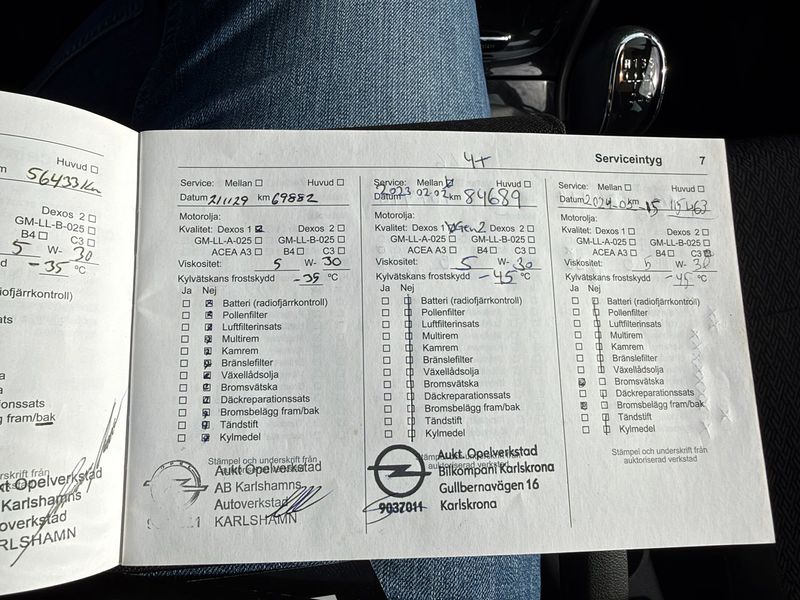 Huvud
56433 Km
Dexos 2
GM-LL-B-025
B4 C3
5 W- 30
-35 °C
diofjärrkontroll)
onssats
g fram/bak
rskrift från
kt Opelverkstad
Karlshamns
overkstad
RLSHAMN
4+
Serviceintyg 7
Service: Mellan Huvud
Datum 211129 km 69882
Motorolja:
Kvalitet: Dexos 1 Dexos 2
GM-LL-A-025 GM-LL-B-025
ACEA A3 B4 C3
Viskositet: 5 W- 30
Kylvätskans frostskydd -35 °C
Ja Nej
Batteri (radiofjärrkontroll)
Pollenfilter
Luftfilterinsats
Multirem
Kamrem
Bränslefilter
Växellådsolja
Bromsvätska
Däckreparationssats
Bromsbelägg fram/bak
Tändstift
Kylmedel
Stämpel och underskrift från
auktoriserad verkstad
Aukt Opelverkstad
AB Karlshamns
Autoverkstad
KARLSHAMN
Service: Mellan Huvud
Datum 2023 02 02 km 84689
Motorolja:
Kvalitet: Dexos 1 Gen2 Dexos 2
GM-LL-A-025 GM-LL-B-025
ACEA A3 B4 C3
Viskositet: 5 W- 30
Kylvätskans frostskydd -45 °C
Ja Nej
Batteri (radiofjärrkontroll)
Pollenfilter
Luftfilterinsats
Multirem
Kamrem
Bränslefilter
Växellådsolja
Bromsvätska
Däckreparationssats
Bromsbelägg fram/bak
Tändstift
Kylmedel
Stämpel och underskrift från
auktoriserad verkstad
Aukt Opelverkstad
Bilkompani Karlskrona
Gullbernavägen 16
9037011 Karlskrona
Service: Mellan Huvud
Datum 2024-02-15 km 115463
Motorolja:
Kvalitet: Dexos 1 Dexos 2
GM-LL-A-025 GM-LL-B-025
ACEA A3 B4 C3
Viskositet: 5 W- 30
Kylvätskans frostskydd -45 °C
Ja Nej
Batteri (radiofjärrkontroll)
Pollenfilter
Luftfilterinsats
Multirem
Kamrem
Bränslefilter
Växellådsolja
Bromsvätska
Däckreparationssats
Bromsbelägg fram/bak
Tändstift
Kylmedel
Stämpel och underskrift från
auktoriserad verkstad